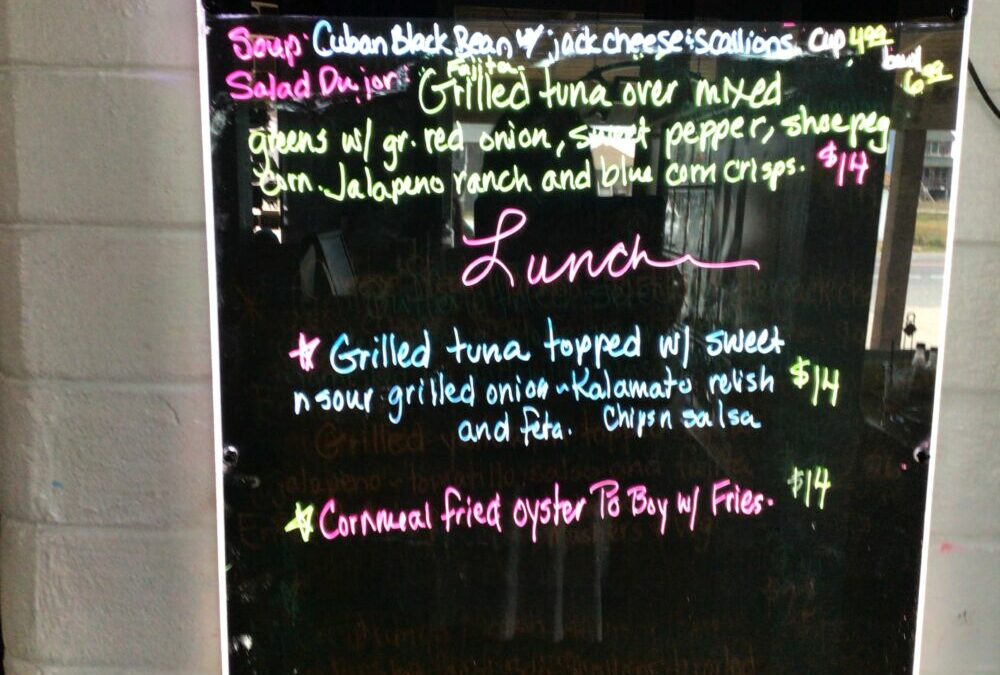 Soup Cuban Black Bean w/ jack cheese & scallions Cup 4.99 bowl 6.99
Salad Du jor Fajita Grilled tuna over mixed
greens w/ gr. red onion, sweet pepper, shoepeg
corn. Jalapeno ranch and blue corn crisps. $14
Lunch
Grilled tuna topped w/ sweet
n sour grilled onion - Kalamata relish $14
and feta. Chips n salsa
Cornmeal fried oyster Po Boy w/ Fries. $14